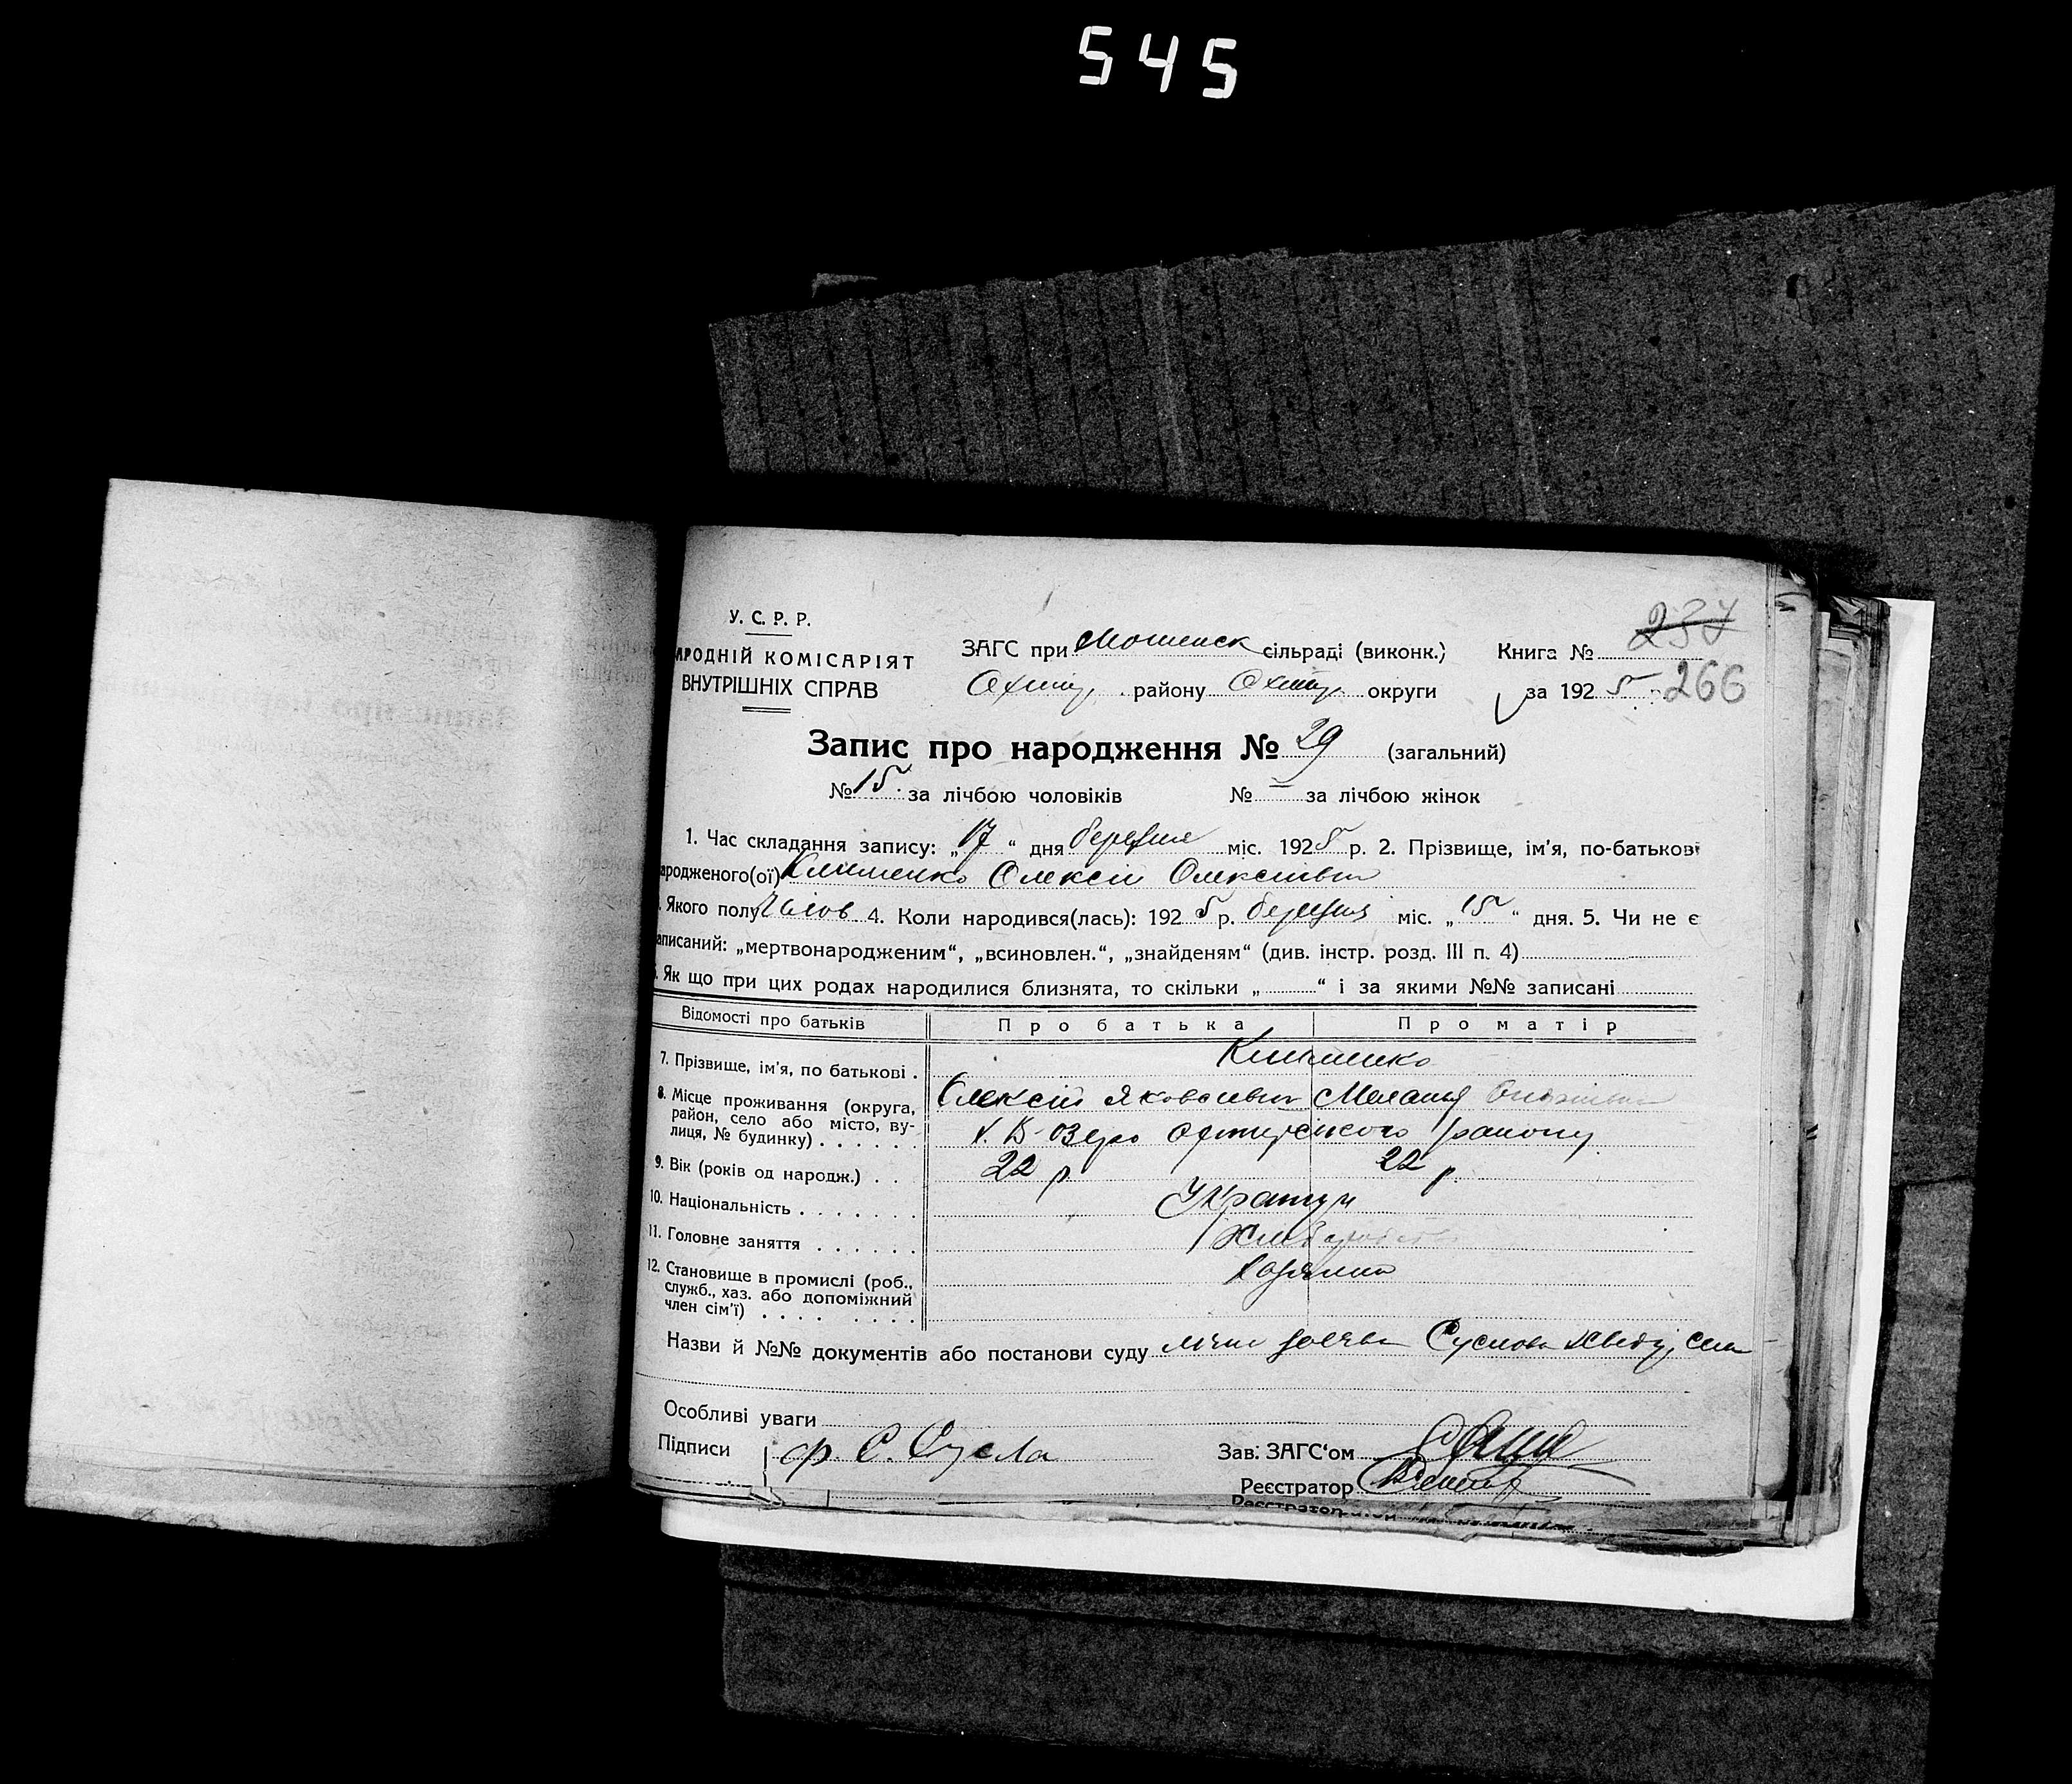 545
У. С. Р. Р.
АРОДНІЙ КОМІСАРІЯТ
ВНУТРІШНІХ СПРАВ
ЗАГС при Мошенск сільраді (виконк.)
Охтир. району Охтир. округи
Книга № 237
за 1925 266
Запис про народження № 29 (загальний)
№ 15. за лічбою чоловіків № – за лічбою жінок
1. Час складання запису: „17“ дня березня міс. 1925 р. 2. Прізвище, ім'я, по-батькові
ародженого(ої) Клименко Олексій Олексіївич
. Якого полу Чолов. 4. Коли народився(лась): 1925 р. березня міс. „15“ дня. 5. Чи не є
аписаний: „мертвонародженим“, „всиновлен.“, „знайденям“ (див. інстр. розд. III п. 4)
. Як що при цих родах народилися близнята, то скільки „ “ і за якими №№ записані
Відомості про батьків Про батька Про матір
7. Прізвище, ім'я, по батькові . Клименко
Олексій Яковлевич Меланья
8. Місце проживання (округа, район, село або місто, вулиця, № будинку) . . . . . х. В-Озеро Охтирського району
9. Вік (років од народж.) . . 22 р 22 р.
10. Національність . . . . . . . Україн
11. Головне заняття . . . . . . Хліборобство
12. Становище в промислі (роб., служб., хаз. або допоміжний член сім'ї) . . . . . . . . Хазяїни
Назви й №№ документів або постанови суду лічна заява Суслова
Особливі уваги
Підписи ф. С. Сусла
Зав. ЗАГС'ом
Реєстратор
Реєстратор